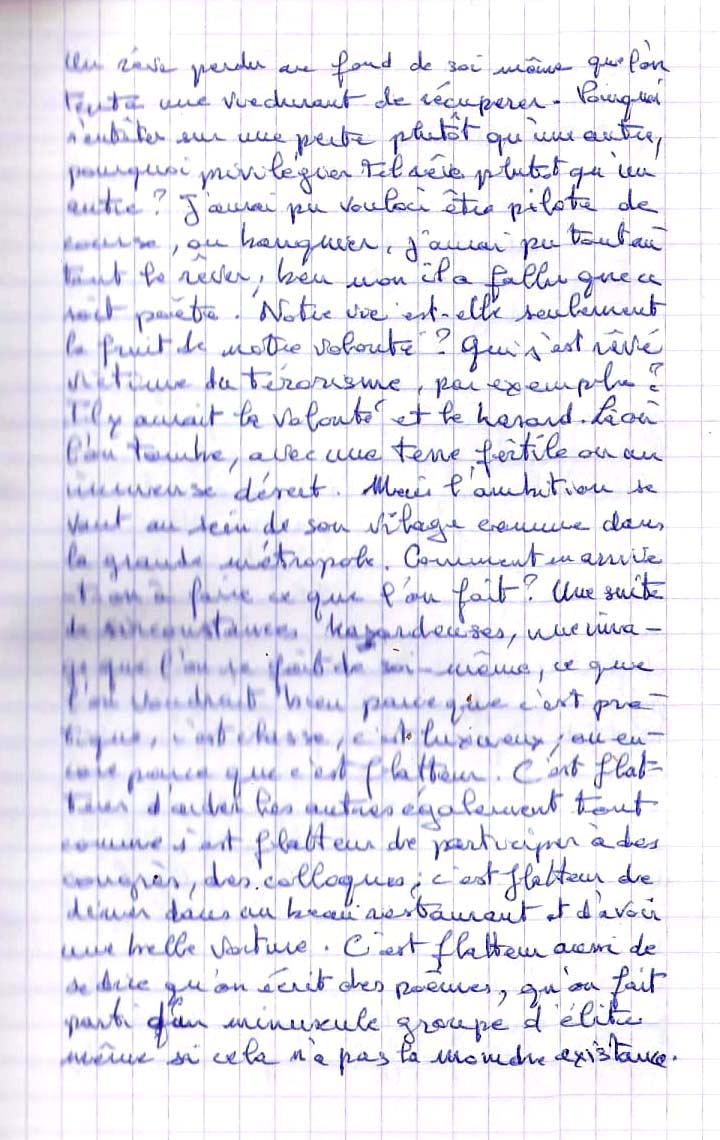 Un rêve perdu au fond de soi même que l'on
tente une vie durant de récuperer. Pourquoi
s'entêter sur une perte plutôt qu'une autre,
pourquoi privilégier tel rêve plutot qu'un
autre? J'aurai pu vouloir être pilote de
course, ou banquier, j'aurai pu tout au-
tant le rêver, ben non il a fallu que ce
soit poète. Notre vie est-elle seulement
le fruit de notre volonté? Qui s'est rêvé
victime du térorisme, par exemple?
Il y aurait la volonté et le hasard. Là où
l'on tombe, avec une terre fertile ou un
immense désert. Mais l'ambition se
vaut au sein de son vilage comme dans
la grande métropole. Comment en arrive
t-on à faire ce que l'on fait? Une suite
de sirconstances hazardeuses, une ima-
ge que l'on se fait de soi-même, ce que
l'on voudrait bien parce que c'est pra-
tique, c'est classe, c'est luxueux, ou en-
core parce que c'est flatteur. C'est flat-
teur d'aider les autres également tout
comme s'est flatteur de participer à des
congrès, des colloques; c'est flatteur de
diner dans un beau restaurant et d'avoir
une belle voiture. C'est flatteur aussi de
se dire qu'on écrit des poèmes, qu'on fait
parti d'un minuscule groupe d'élite
même si cela n'a pas la moindre existance.